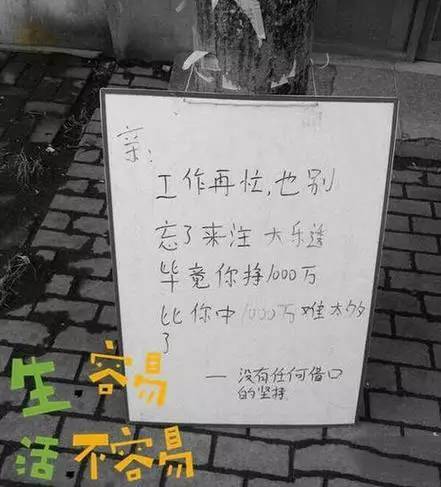 亲:
工作再忙,也别
忘了来注大乐透
毕竟你挣1000万
比你中1000万难太多
了
— 没有任何借口
的坚持
生容易
活不容易